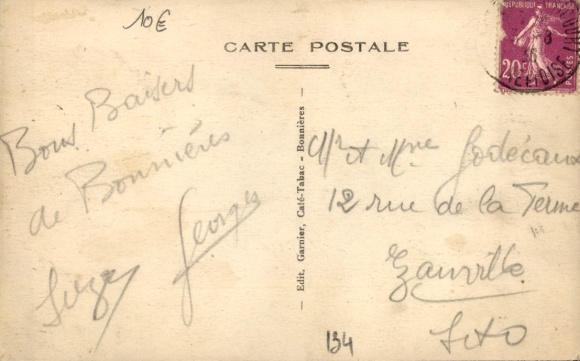 10€
CARTE POSTALE
RÉPUBLIQUE FRANÇAISE
20c
POSTES
Bons Baisers
de Bonnières
Suzy Georges
Edit. Garnier, Café-Tabac - Bonnières
Mr et Mme Godécaux
12 rue de la Ferme
S et O
134